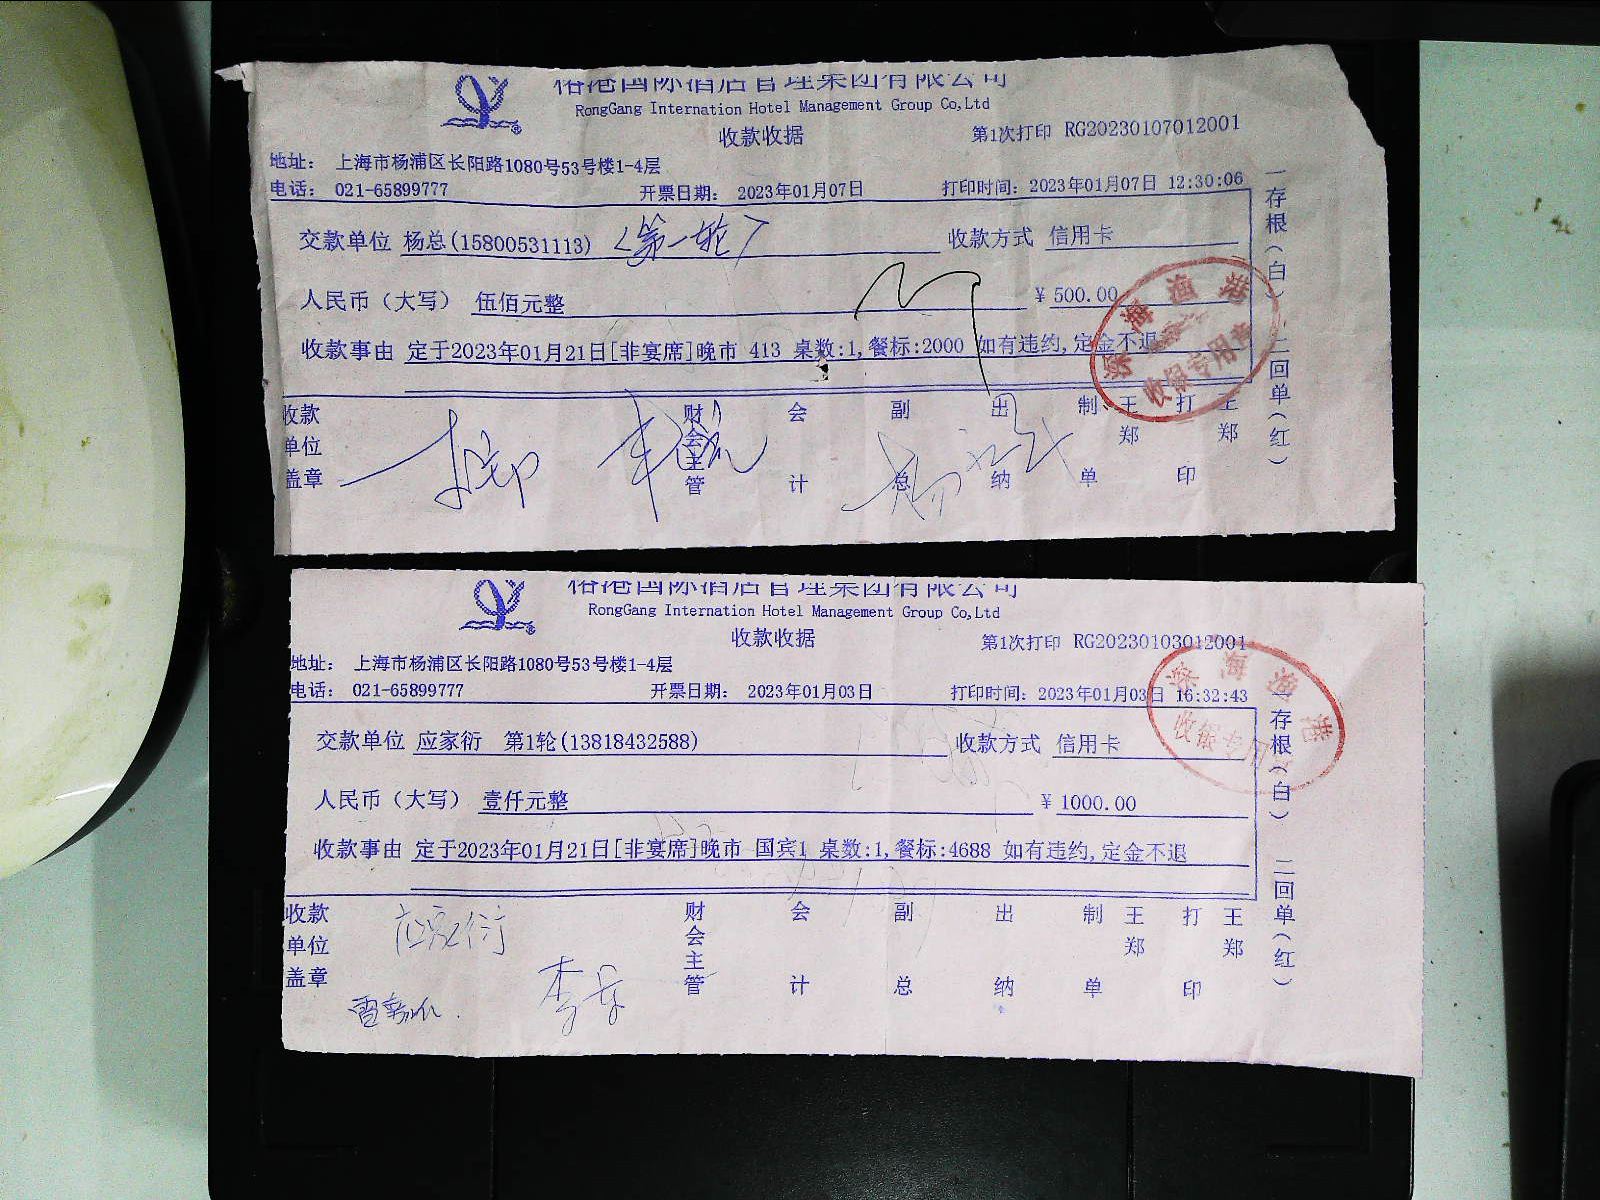 榕港国际酒店管理集团有限公司
RongGang Internation Hotel Management Group Co,Ltd
收款收据
第1次打印 RG20230107012001
地址： 上海市杨浦区长阳路1080号53号楼1-4层
电话： 021-65899777 开票日期： 2023年01月07日 打印时间：2023年01月07日 12:30:06
交款单位 杨总(15800531113) <第一轮> 收款方式 信用卡
人民币（大写） 伍佰元整 ¥ 500.00
收款事由 定于2023年01月21日[非宴席]晚市 413 桌数:1,餐标:2000 如有违约,定金不退
收款单位盖章 财会主管 会计 副总 出纳 制单 王郑 打印 王郑
一存根（白） 二回单（红）
深海渔港
收银专用章
榕港国际酒店管理集团有限公司
RongGang Internation Hotel Management Group Co,Ltd
收款收据
第1次打印 RG20230103012001
地址： 上海市杨浦区长阳路1080号53号楼1-4层
电话： 021-65899777 开票日期： 2023年01月03日 打印时间：2023年01月03日 16:32:43
交款单位 应家衍 第1轮(13818432588) 收款方式 信用卡
人民币（大写） 壹仟元整 ¥ 1000.00
收款事由 定于2023年01月21日[非宴席]晚市 国宾1 桌数:1,餐标:4688 如有违约,定金不退
收款单位盖章 财会主管 会计 副总 出纳 制单 王郑 打印 王郑
应家衍
一存根（白） 二回单（红）
深海渔港
收银专用